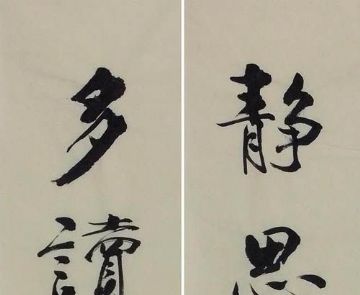 静思
多讀